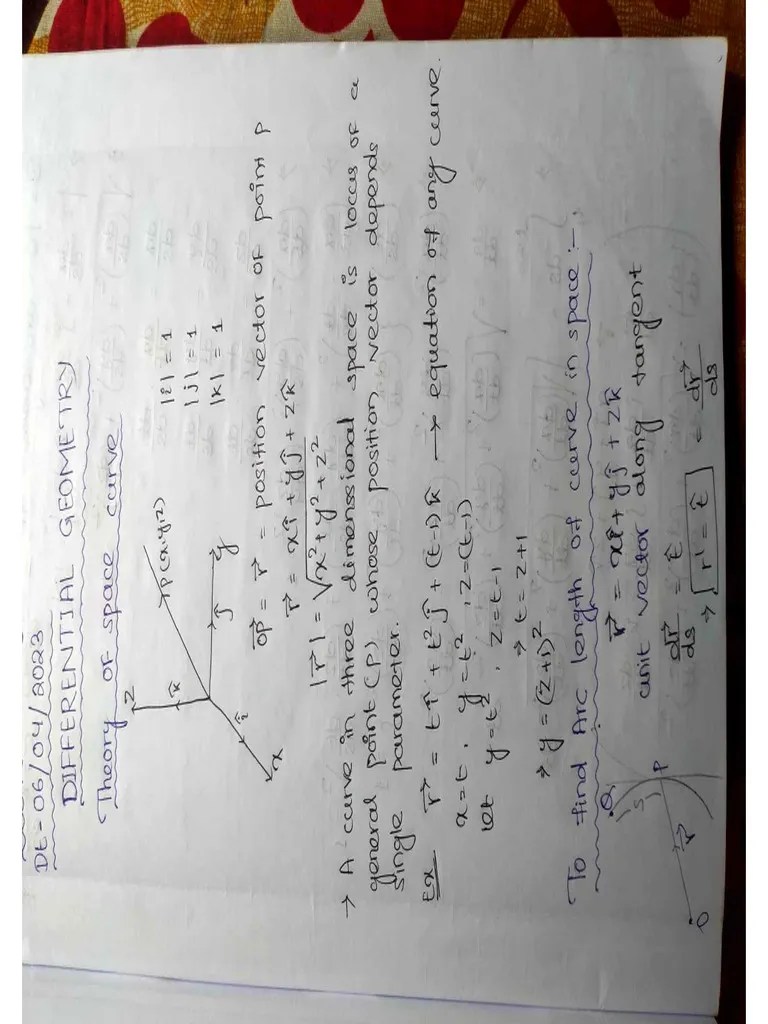 DE-06/04/2023
DIFFERENTIAL GEOMETRY
Theory of space curve
z
k̂
P(x,y,z)
ĵ
y
î
x
|î| = 1
|ĵ| = 1
|k̂| = 1
OP⃗ = r⃗ = position vector of point P
r⃗ = xî + yĵ + zk̂
|r⃗| = √x²+y²+z²
→ A curve in three dimenssional space is locus of a
general point (P) whose position vector depends
single parameter.
Ex r⃗ = tî + t²ĵ + (t-1)k̂ → equation of any curve.
x=t, y=t², z=(t-1)
let y=t², z=t-1
→ t=z+1
→ y=(z+1)²
To find Arc length of curve in space :-
Q
S
P
r⃗
O
r⃗ = xî + yĵ + zk̂
unit vector along tangent
dr⃗/ds = t̂
→ r' = t̂ = dr⃗/ds